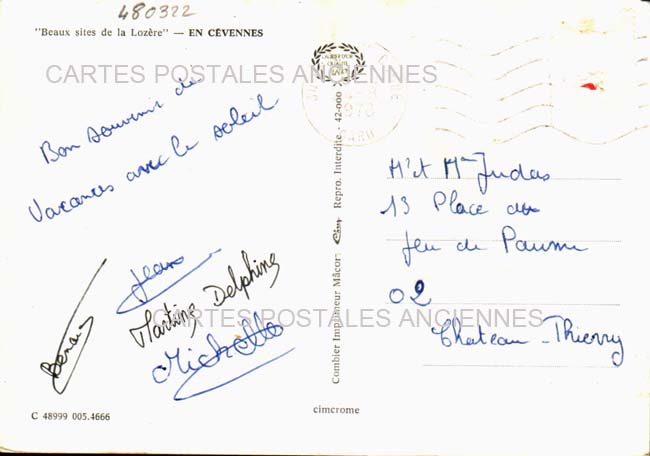 480322
"Beaux sites de la Lozère" — EN CÉVENNES
CARTES POSTALES ANCIENNES
Bon souvenir de
Vacances avec le soleil
Jean
Martine Delphine
Michelle
C 48999 005.4666
Combier Imprimeur Mâcon
Repro. Interdite - 42-000
cimcrome
1978
GARD
Mr et Mme Judas
13 Place du
Jeu de Paume
02
Chateau-Thierry
CARTES POSTALES ANCIENNES